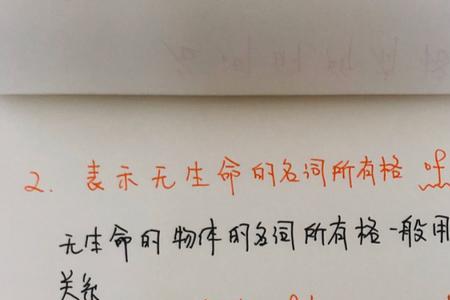 2. 表示无生命的名词所有格 of
无生命的物体的名词所有格一般用
关系